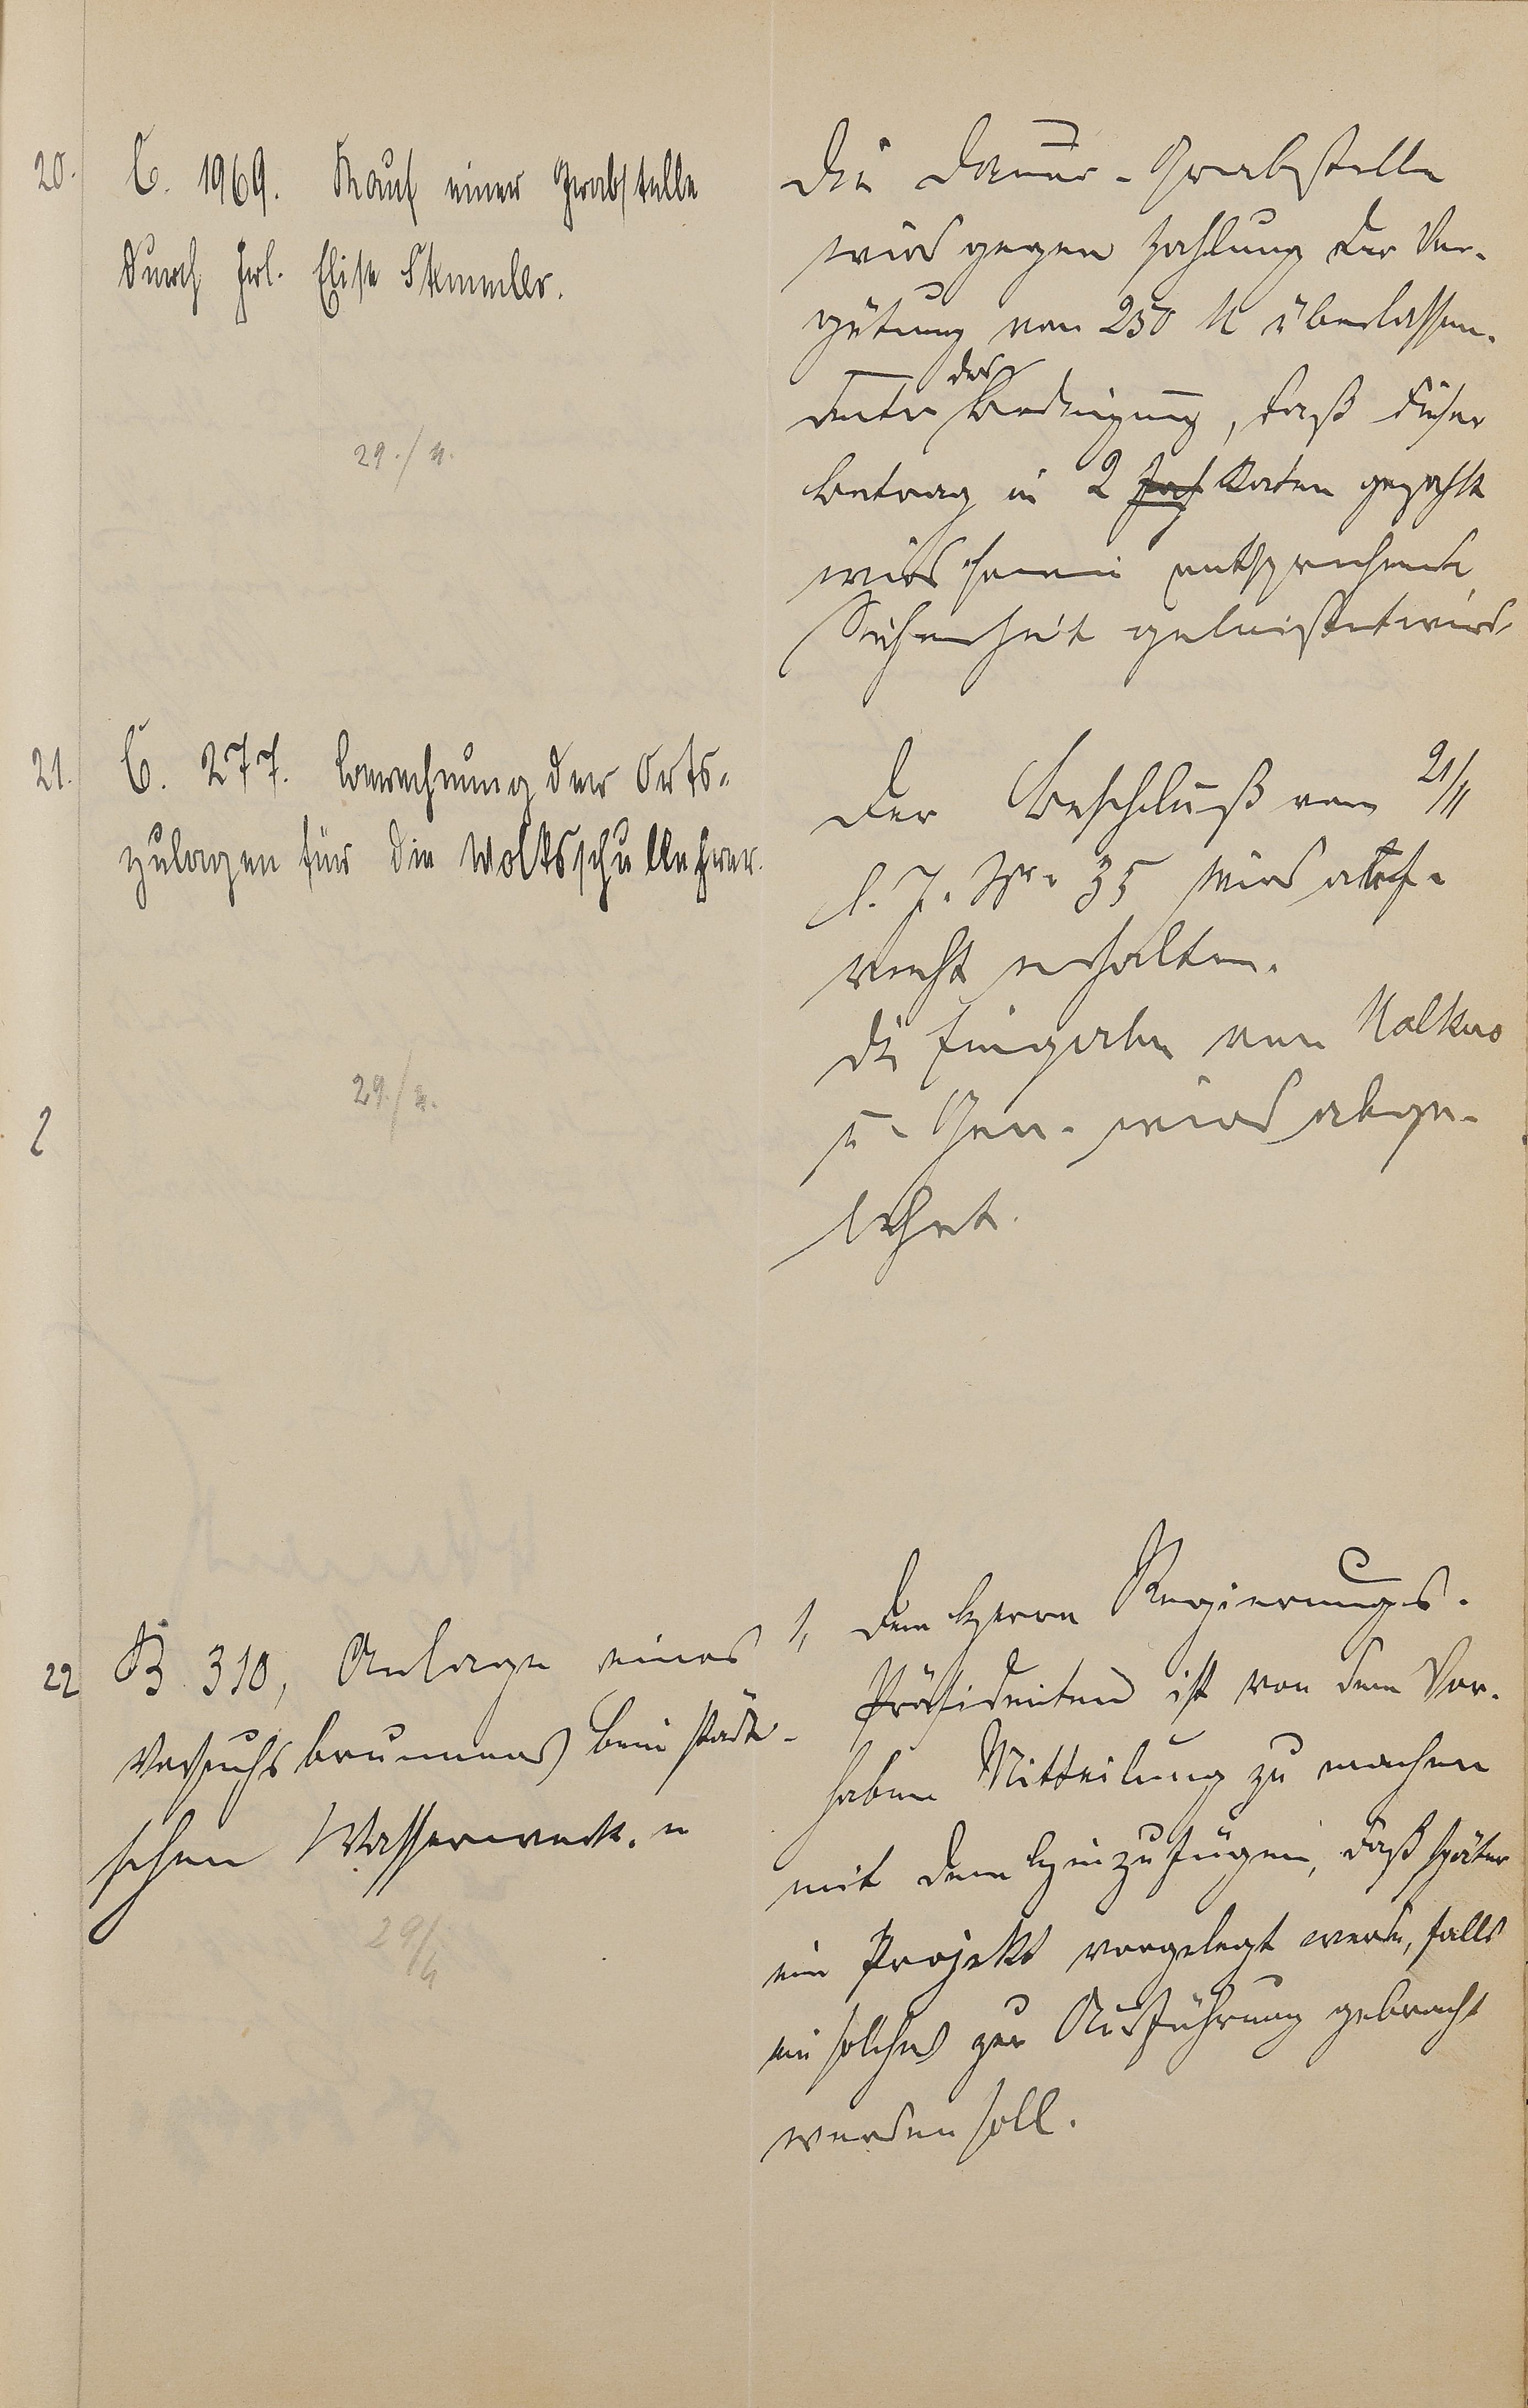 20.
C. 1969. Kauf einer Grabstelle
durch Frl. Elise Stemmler.
29./4.
Die Dauer-Grabstelle
wird gegen Zahlung der Ver-
gütung von 250 M überlassen.
unter der Bedingung, daß dieser
Betrag in 2 Jah Raten gezahlt
wird entsprechende
Sicherheit geleistet wird
21.
C. 277. Berechnung der Orts-
zulagen für die Volksschullehrer.
29./4.
Der Beschluß vom 2/4
l. J. Nr. 35 wird auf-
recht erhalten.
Die Eingabe von
u. Gen. wird abge-
lehnt.
22
B 310, Anlage eines
Versuchsbrunnens beim städti-
schen Wasserwerk.
29/4
1, Dem Herrn Regierungs-
Präsidenten ist von dem Vor-
haben Mitteilung zu machen
mit dem Hinzufügen, daß später
ein Projekt vorgelegt werde, falls
ein solches zur Ausführung gebracht
werden soll.